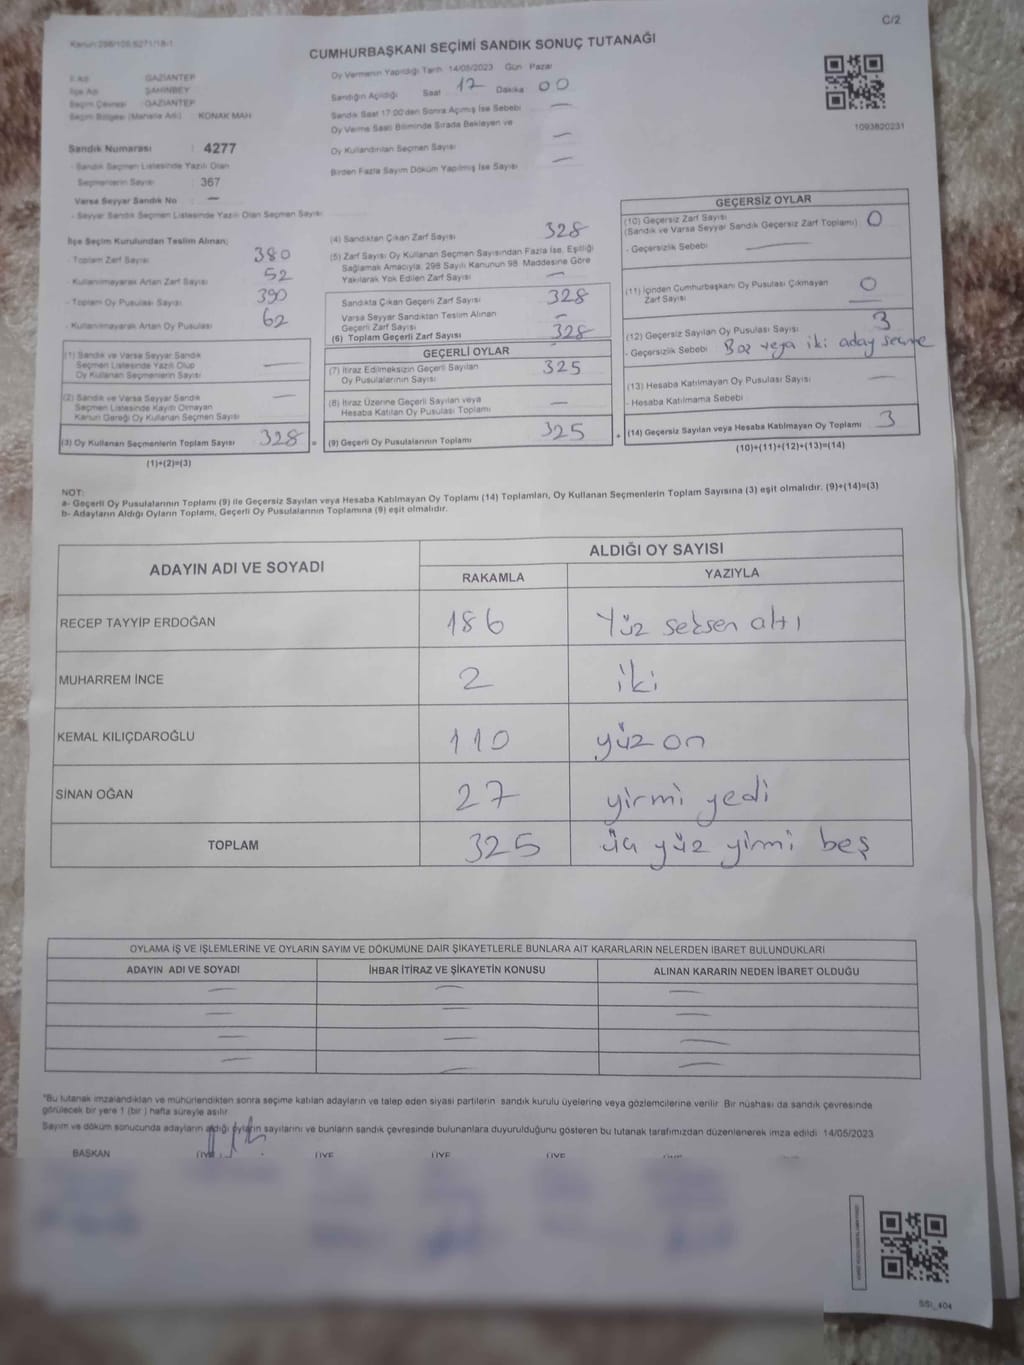 C/2
Kanun:298/105 6271/18-1
CUMHURBAŞKANI SEÇİMİ SANDIK SONUÇ TUTANAĞI
İl Adı GAZİANTEP
İlçe Adı ŞAHİNBEY
Seçim Çevresi GAZİANTEP
Seçim Bölgesi (Mahalle Adı) KONAK MAH
Sandık Numarası : 4277
- Sandık Seçmen Listesinde Yazılı Olan
Seçmenlerin Sayısı : 367
Varsa Seyyar Sandık No —
- Seyyar Sandık Seçmen Listesinde Yazılı Olan Seçmen Sayısı
Oy Vermenin Yapıldığı Tarih 14/05/2023 Gün Pazar
Sandığın Açıldığı Saat 17 Dakika 00
Sandık Saat 17:00'den Sonra Açılmış İse Sebebi —
Oy Verme Saati Bitiminde Sırada Bekleyen ve
Oy Kullandırılan Seçmen Sayısı —
Birden Fazla Sayım Döküm Yapılmış İse Sayısı —
1093820231
İlçe Seçim Kurulundan Teslim Alınan;
- Toplam Zarf Sayısı 380
- Kullanılmayarak Artan Zarf Sayısı 52
- Toplam Oy Pusulası Sayısı 390
- Kullanılmayarak Artan Oy Pusulası 62
(1) Sandık ve Varsa Seyyar Sandık
Seçmen Listesinde Yazılı Olup
Oy Kullanan Seçmenlerin Sayısı —
(2) Sandık ve Varsa Seyyar Sandık
Seçmen Listesinde Kayıtlı Olmayan
Kanun Gereği Oy Kullanan Seçmen Sayısı —
(3) Oy Kullanan Seçmenlerin Toplam Sayısı 328 =
(1)+(2)=(3)
(4) Sandıktan Çıkan Zarf Sayısı 328
(5) Zarf Sayısı Oy Kullanan Seçmen Sayısından Fazla İse, Eşitliği
Sağlamak Amacıyla, 298 Sayılı Kanunun 98. Maddesine Göre
Yakılarak Yok Edilen Zarf Sayısı —
Sandıkta Çıkan Geçerli Zarf Sayısı 328
Varsa Seyyar Sandıktan Teslim Alınan
Geçerli Zarf Sayısı —
(6) Toplam Geçerli Zarf Sayısı 328
GEÇERLİ OYLAR
(7) İtiraz Edilmeksizin Geçerli Sayılan
Oy Pusulalarının Sayısı 325
(8) İtiraz Üzerine Geçerli Sayılan veya
Hesaba Katılan Oy Pusulası Toplamı —
(9) Geçerli Oy Pusulalarının Toplamı 325 +
GEÇERSİZ OYLAR
(10) Geçersiz Zarf Sayısı
(Sandık ve Varsa Seyyar Sandık Geçersiz Zarf Toplamı) 0
- Geçersizlik Sebebi —
(11) İçinden Cumhurbaşkanı Oy Pusulası Çıkmayan
Zarf Sayısı 0
(12) Geçersiz Sayılan Oy Pusulası Sayısı 3
- Geçersizlik Sebebi Boz veya iki aday seçme
(13) Hesaba Katılmayan Oy Pusulası Sayısı —
- Hesaba Katılmama Sebebi
(14) Geçersiz Sayılan veya Hesaba Katılmayan Oy Toplamı 3
(10)+(11)+(12)+(13)=(14)
NOT:
a- Geçerli Oy Pusulalarının Toplamı (9) ile Geçersiz Sayılan veya Hesaba Katılmayan Oy Toplamı (14) Toplamları, Oy Kullanan Seçmenlerin Toplam Sayısına (3) eşit olmalıdır. (9)+(14)=(3)
b- Adayların Aldığı Oyların Toplamı, Geçerli Oy Pusulalarının Toplamına (9) eşit olmalıdır.
ADAYIN ADI VE SOYADI ALDIĞI OY SAYISI
RAKAMLA YAZIYLA
RECEP TAYYİP ERDOĞAN 186 Yüz seksen altı
MUHARREM İNCE 2 iki
KEMAL KILIÇDAROĞLU 110 yüz on
SİNAN OĞAN 27 yirmi yedi
TOPLAM 325 üç yüz yirmi beş
OYLAMA İŞ VE İŞLEMLERİNE VE OYLARIN SAYIM VE DÖKÜMÜNE DAİR ŞİKAYETLERLE BUNLARA AİT KARARLARIN NELERDEN İBARET BULUNDUKLARI
ADAYIN ADI VE SOYADI İHBAR İTİRAZ VE ŞİKAYETİN KONUSU ALINAN KARARIN NEDEN İBARET OLDUĞU
— — —
— — —
— — —
— — —
*Bu tutanak imzalandıktan ve mühürlendikten sonra seçime katılan adayların ve talep eden siyasi partilerin sandık kurulu üyelerine veya gözlemcilerine verilir. Bir nüshası da sandık çevresinde
görülecek bir yere 1 (bir) hafta süreyle asılır.
Sayım ve döküm sonucunda adayların aldığı oyların sayılarını ve bunların sandık çevresinde bulunanlara duyurulduğunu gösteren bu tutanak tarafımızdan düzenlenerek imza edildi 14/05/2023
BAŞKAN ÜYE ÜYE ÜYE ÜYE
SSİ_404